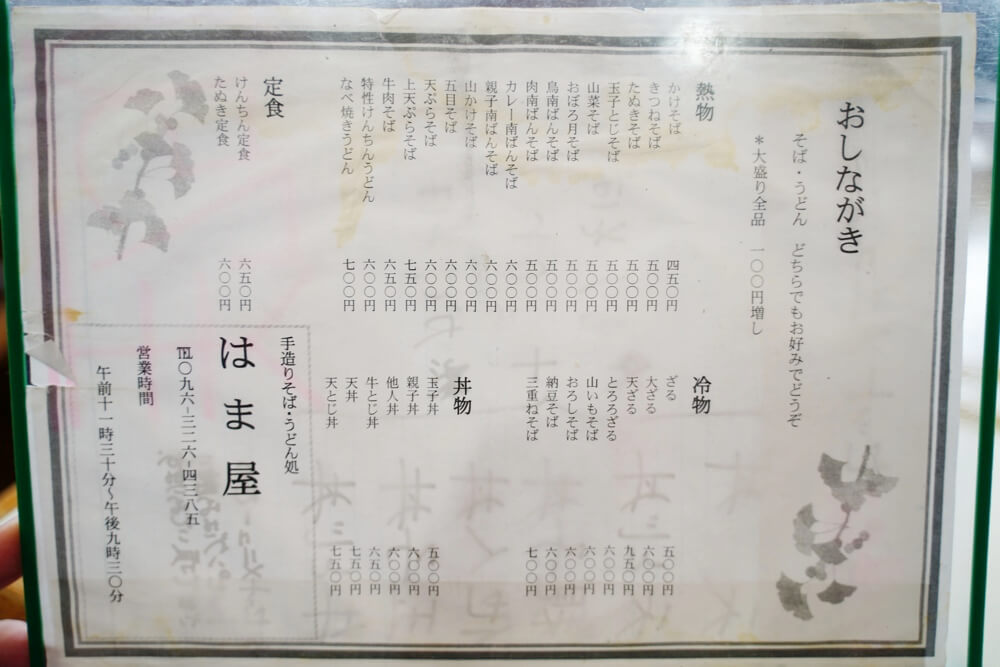 おしながき
そば・うどん どちらでもお好みでどうぞ
*大盛り全品 一〇〇円増し
熱物
かけそば 四五〇円
きつねそば 五〇〇円
たぬきそば 五〇〇円
玉子とじそば 五〇〇円
山菜そば 五〇〇円
おぼろ月そば 五〇〇円
鳥南ばんそば 五〇〇円
肉南ばんそば 五〇〇円
カレー南ばんそば 六〇〇円
親子南ばんそば 六〇〇円
山かけそば 六〇〇円
五目そば 六〇〇円
天ぷらそば 六〇〇円
上天ぷらそば 七五〇円
牛肉そば 六五〇円
特性けんちんうどん 六〇〇円
なべ焼きうどん 七〇〇円
定食
けんちん定食 六五〇円
たぬき定食 六〇〇円
冷物
ざる 五〇〇円
大ざる 六〇〇円
天ざる 九五〇円
とろろざる 六〇〇円
山いもそば 六〇〇円
おろしそば 六〇〇円
納豆そば 六〇〇円
三重ねそば 七〇〇円
丼物
玉子丼 五〇〇円
親子丼 六〇〇円
他人丼 六〇〇円
牛とじ丼 六五〇円
天丼 七五〇円
天とじ丼 七五〇円
手造りそば・うどん処
はま屋
℡〇九六-三二六-四三八五
営業時間
午前十一時三十分~午後九時三〇分